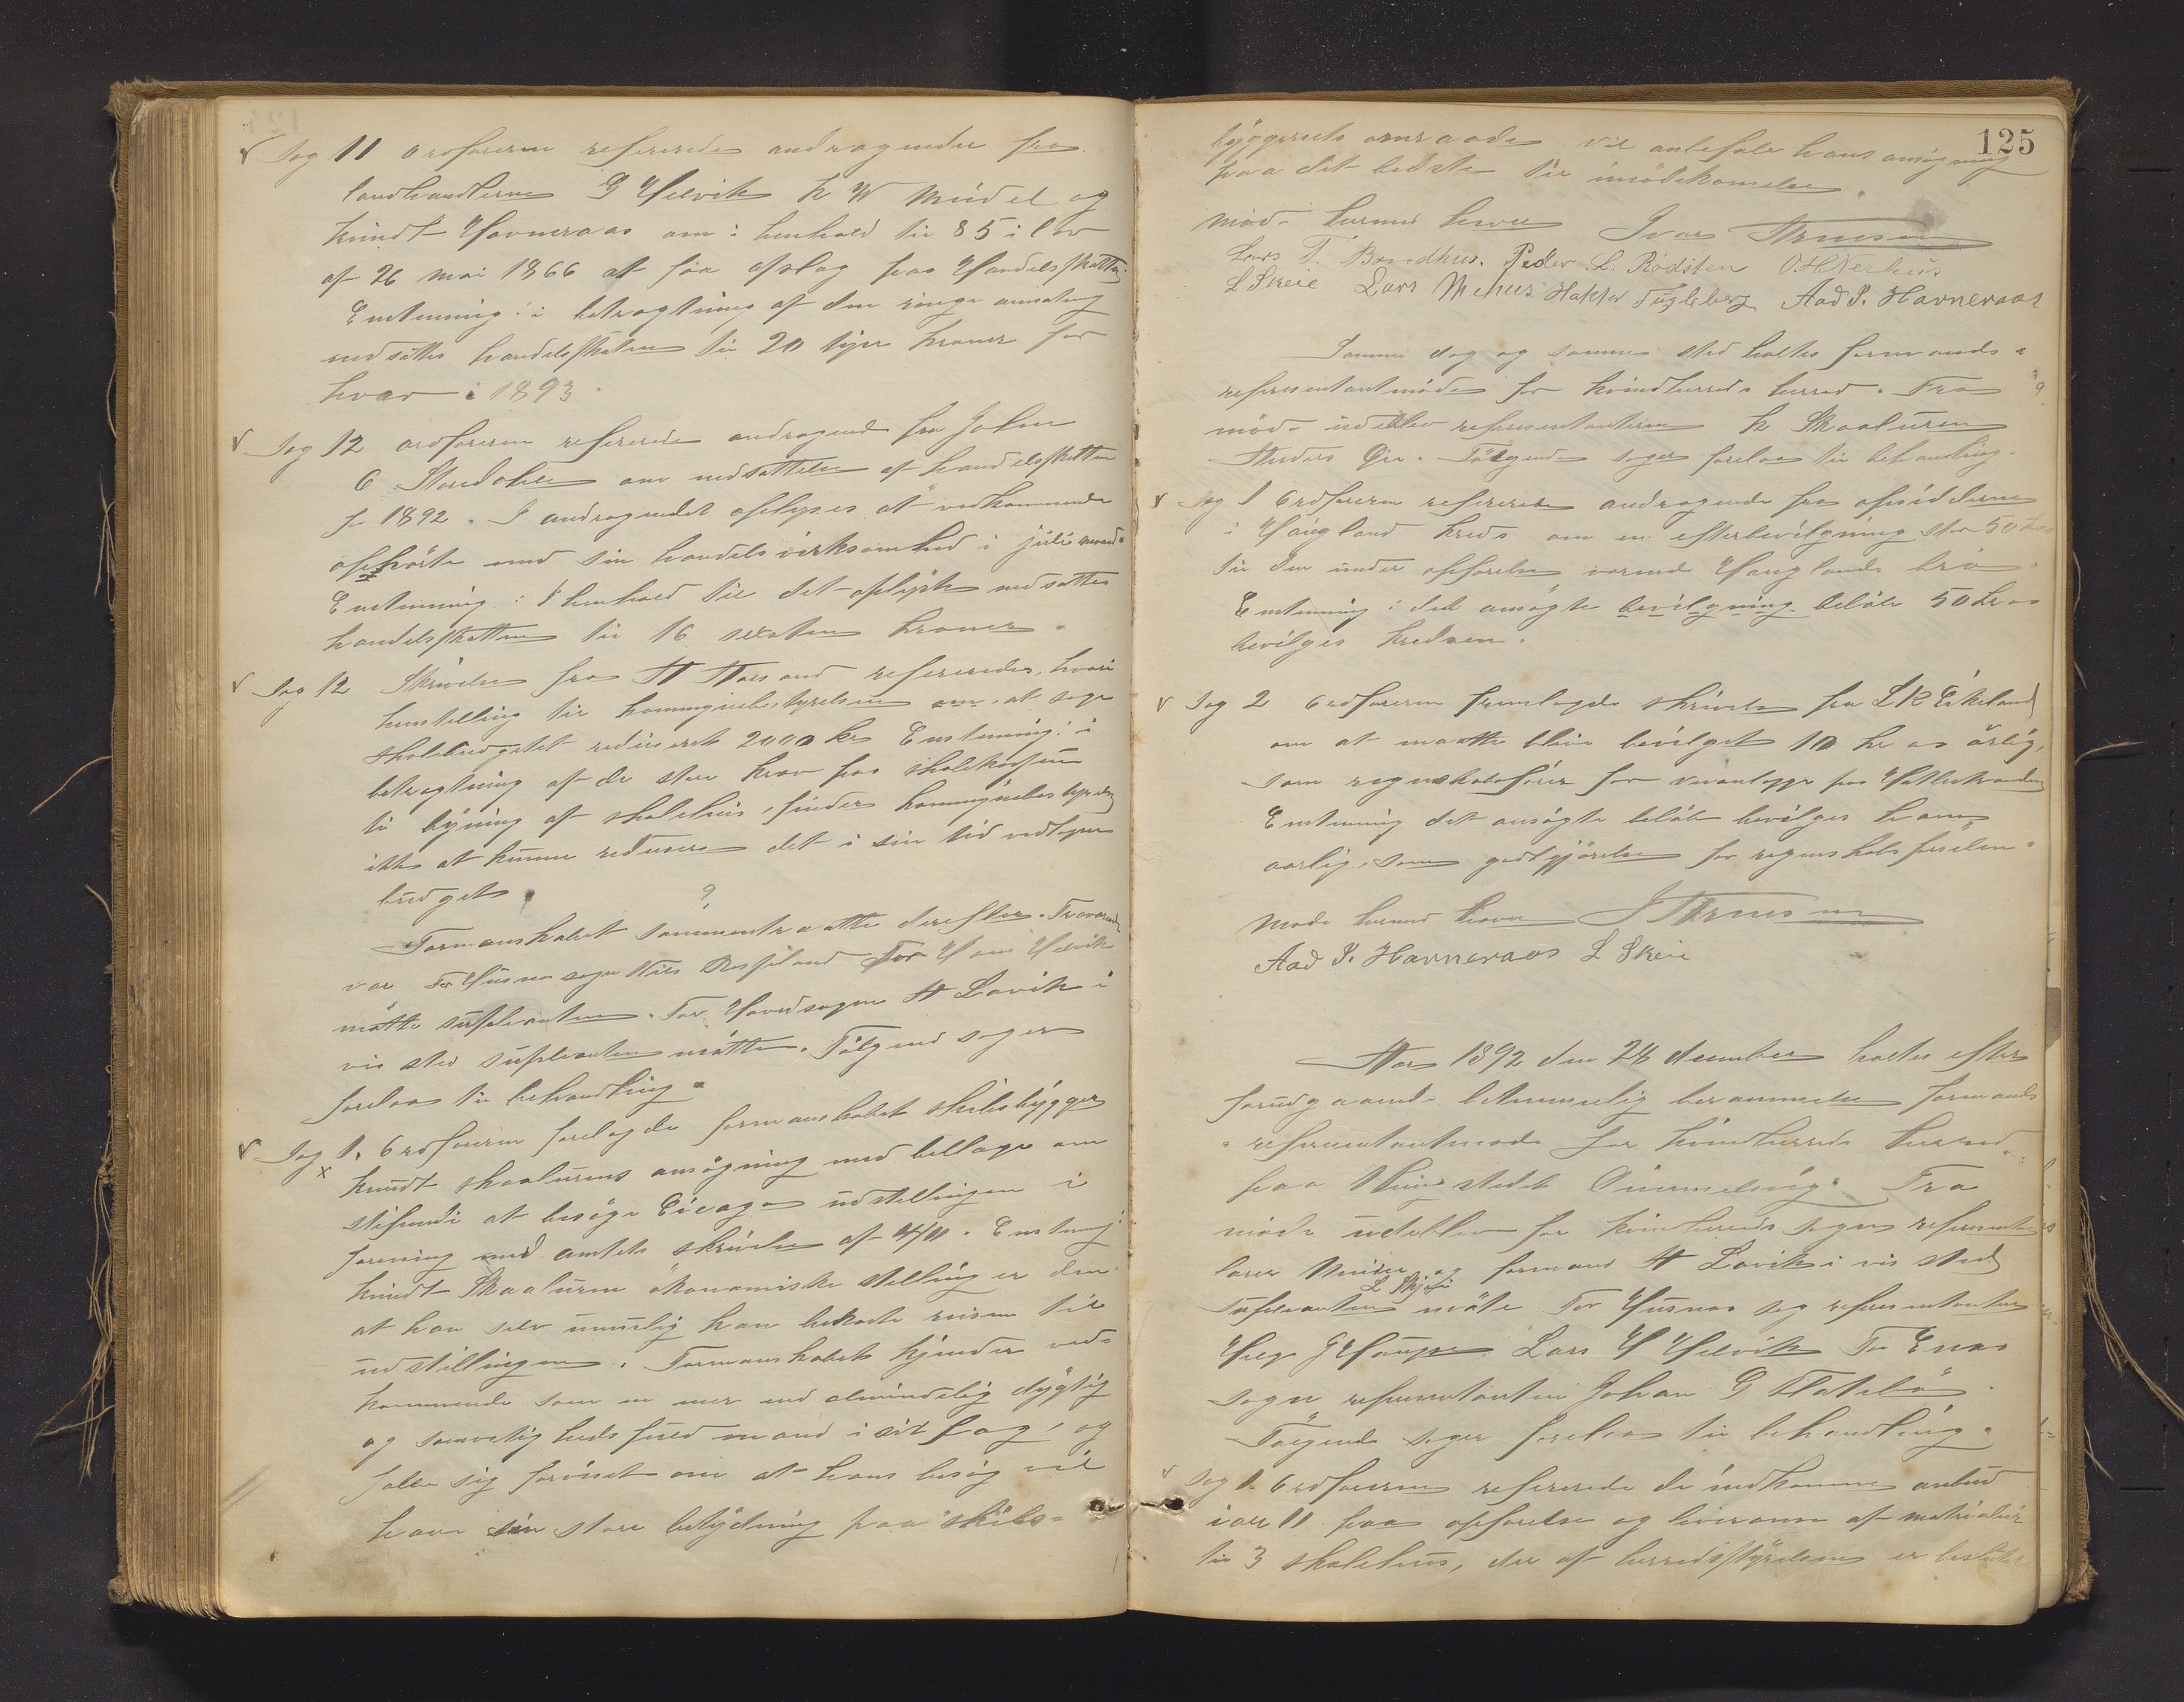 Sag 11 ordføreren refererede andragende fra
landhandlerne G Helvik K W Mudel og
Knudt Havneraas om i henhold til § 5 i lov
af 26 mai 1866 at faa afslag paa Handelsskatten
Enstemmig: i betragtning af den ringe omsætning
nedsættes handelsskatten til 20 tyve kroner for
hver i 1893.
Sag 12 ordføreren refererede andragende fra John
O om nedsættelse af handelsskatten
for 1892. I andragendet oplyses at vedkommende
ophörte med sin handelsvirksomhed i juli maaned.
Enstemmig: I henhold til det oplyste nedsættes
handelsskatten til 16 sexten kroner.
Sag 12 Skrivelse fra refereredes, hvori
henstilling til kommunebestyrelsen om at søge
skolebudgetet reduseret 2000 kr Enstemmig: i
betragtning af de store krav paa skolekassen
til bygning af skolehus, finder kommunebestyrelsen
ikke at kunne redusere det i sin tid vedtagne
budget. 9
Formanskabet sammentraatte derefter. Fraværende
var For Husnes sogn Nils For Hans Helvik
mötte suppleanten. For Hovedsognet A Lavik i
vis sted supleanten mötte. Fölgende sager
forelaa til behandling.
Sag 1. Ordføreren forelagde formanskabet skibsbygger
x Knudt Skaalurens ansögning med billage om
stipendie at besöge Cicago udstellingen i
forening med amtets skrivelse af 4/11. Enstemmig
Knudt Skaaluren ökonomiske stelling er den
at han selv umulig kan bekoste reisen til
udstillingen. Formanskabet kjender ved-
kommende som en mer end almindelig dygtig
og samvetighedsfuld mand i sit fag, og
föler sig forvisset om at hans besög vil
have sin store betydning paa skibs=
125
byggeriets omraade vil anbefale hans ansögning
paa det bedste til imödekomelse.
mödet hermed hevet Ivar Arnesen
Lars T. Bondhus. Peder L. Rödsten O. H. Nerhus
L Skeie Lars Mehus Haktor Fugleberg Aad P. Havneraas
Samme dag og samme sted holtes formands=
representantmöde for Kvindherreds herred. Fra
möde udeblev representanterne K Skaaluren
Anders Öie. Fölgende sager forelaa til behandling.
Sag 1 Ordføreren refererede andragende fra opsidderne
i Haugland Kreds om en efterbevilgning stor 50 kr
til den under opførelse værende Hauglands bro.
Enstemmig: det ansögte bevilgning belöb 50 kr
bevilges kredsen.
Sag 2 Ordføreren fremlagde skrivelse fra L K Eikeland
om at maatte blive bevilget 10 kr örlig,
som regnskabsförer for
Enstemmig det ansögte belöb bevilges ham
aarlig, som godtgjörelse for regnskabsförselen.
Möde hermed hævet I Arnesen
Aad P. Havneraas L Skeie
Aar 1892 den 28 desember holtes efter
forudgaaende betimmelig berammelse formands
=representantmøde for Kvindherreds herred
paa Thingstedet Ømmelvig. Fra
möde udeblev for Kvindherreds sogn representant
lærer og formand A Lavik i vis sted
L Skjeie
Supleanten möte For Husnes sogn representanter
Helge Lars H Helvik For Enes
sogn representanten Johan G Flatebö.
Fölgende sager forelaa til behandling.
Sag 1. Ordføreren refererede de indkomne anbud
paa opførelse og leverance af matrialier
til 3 skolehus, der af herredsstyrelsen er besluttet